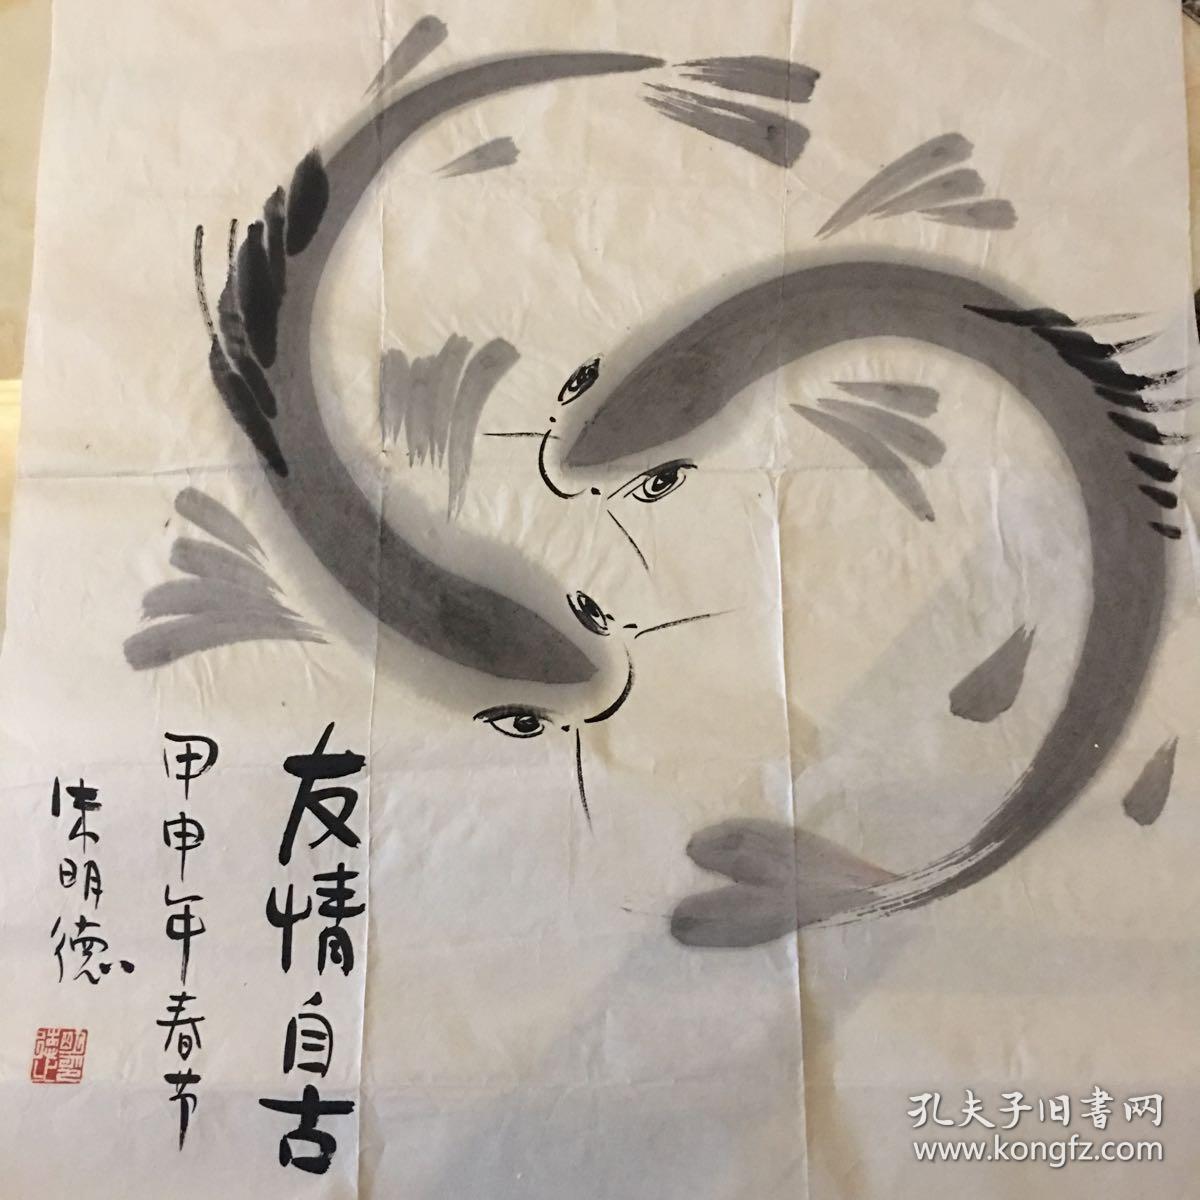 友情自古
甲申年春节
朱明德
孔夫子旧書网
www.kongfz.com